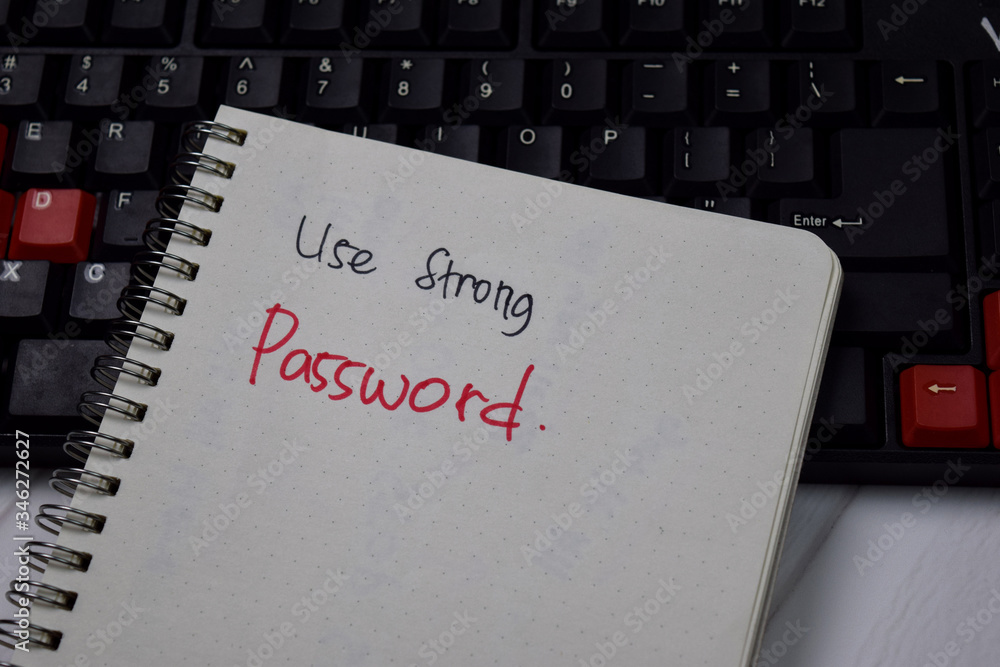 F7 F8 F9 F10 F11 F12
# 3 $ 4 % 5 ^ 6 & 7 * 8 ( 9 ) 0 _ - + = | \
E R U I O P { [ } ]
D F " Enter
X C
Use Strong
Password.
Adobe Stock | #346272627
Adobe Stock